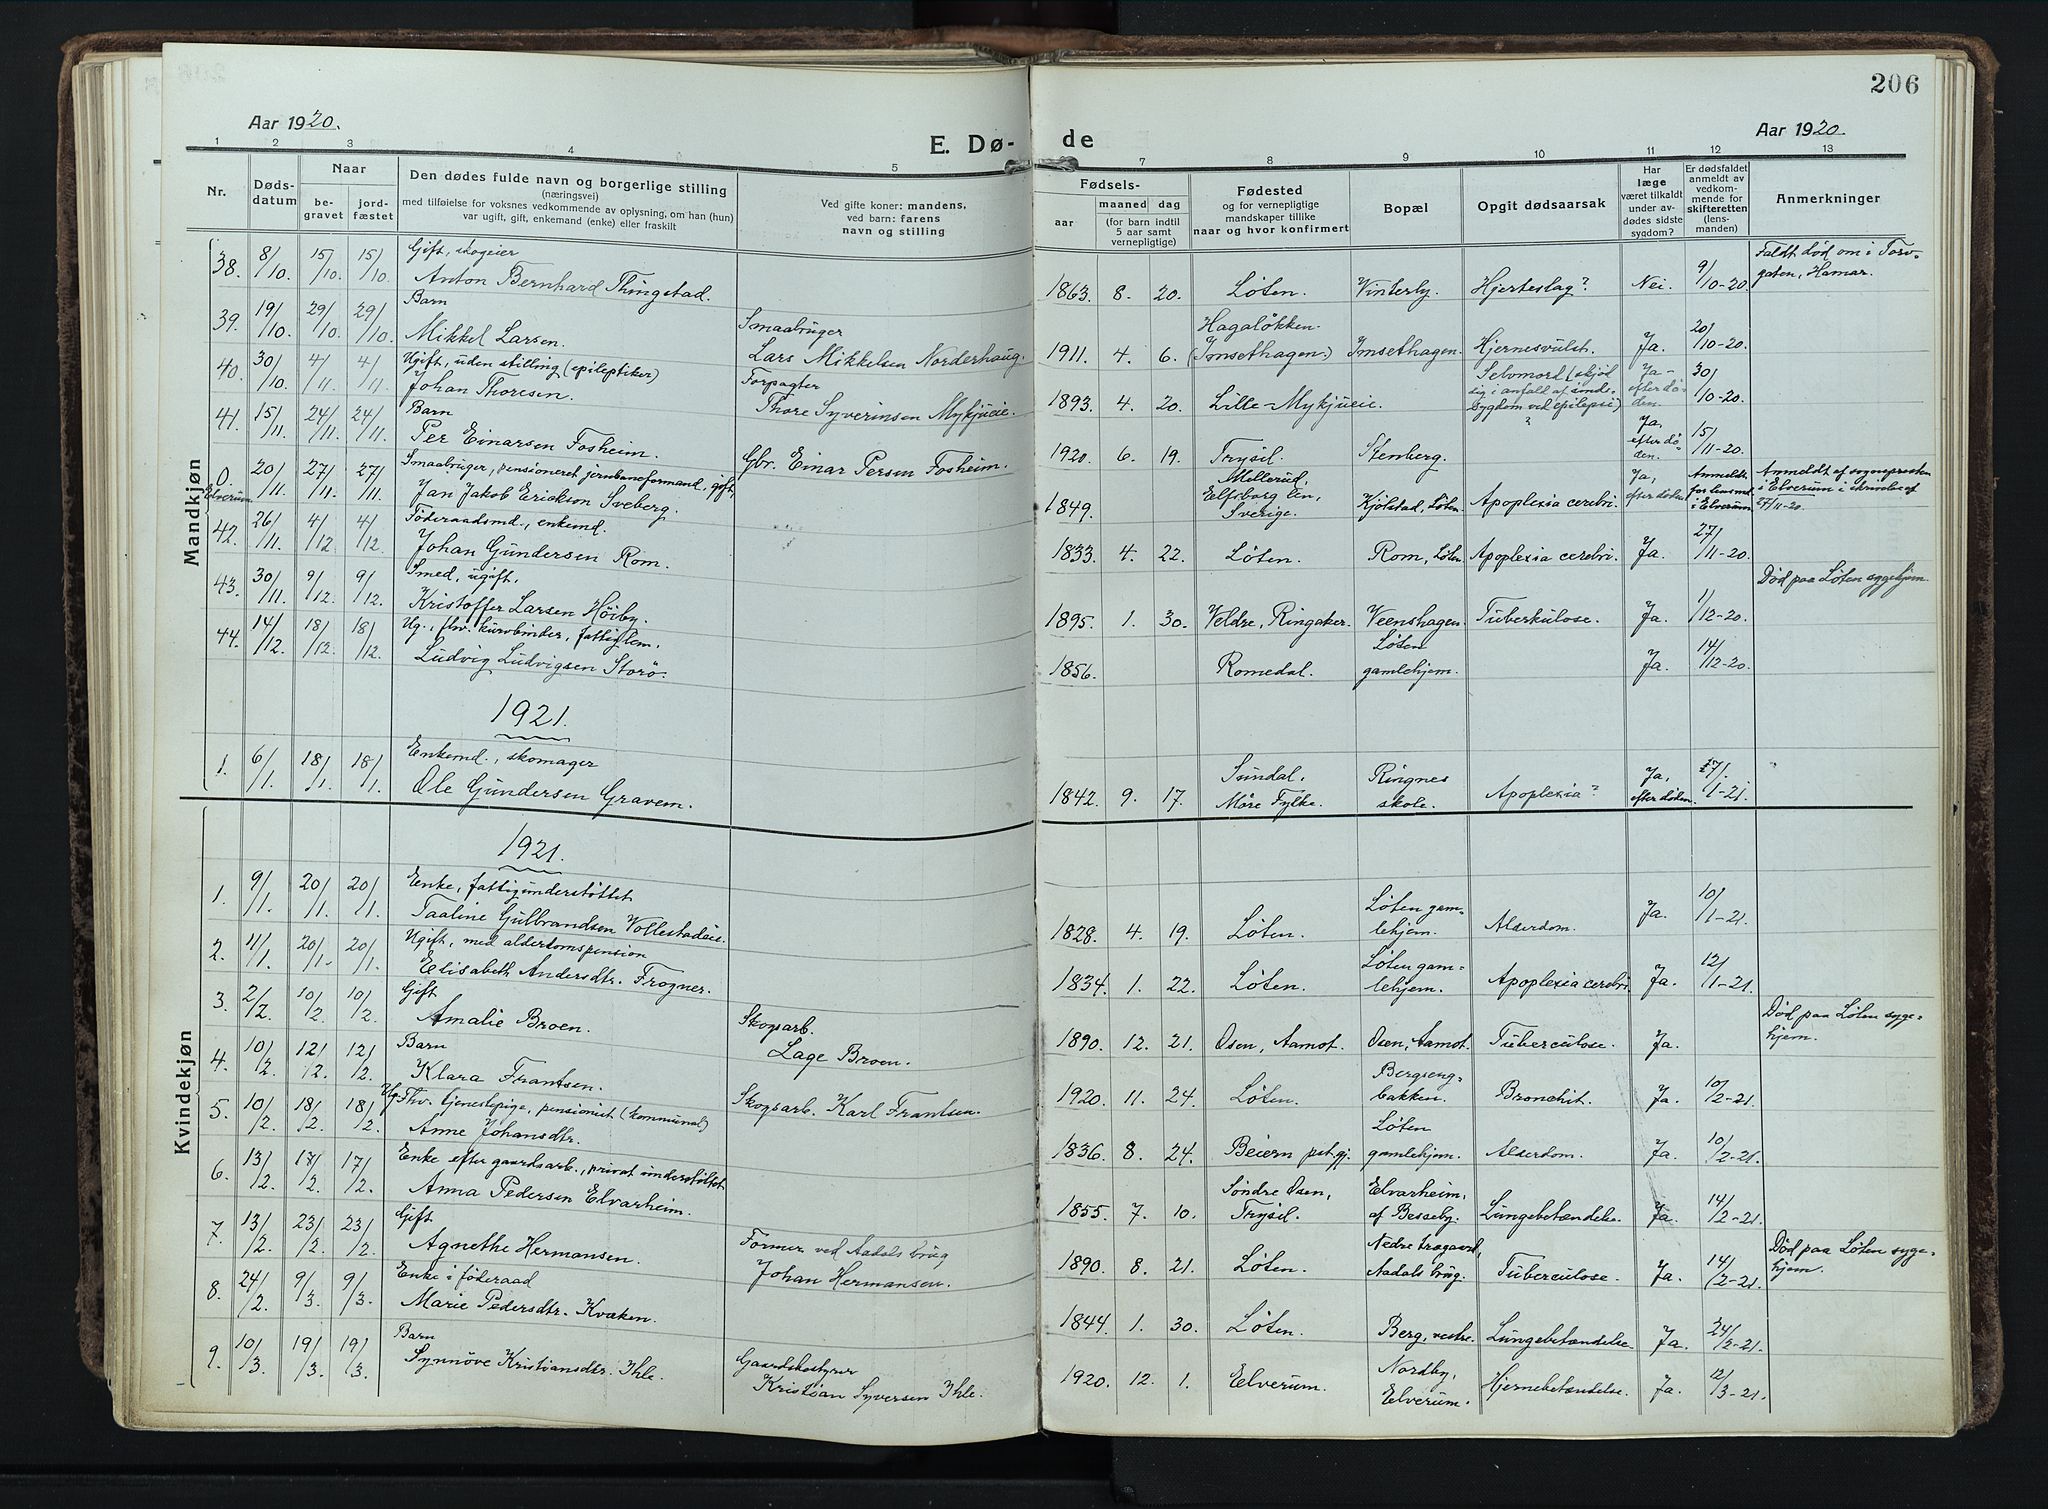 206
Aar 1920.
E. Dø-
de
Aar 1920.
1 2 3 4 5 7 8 9 10 11 12 13
Nr.
Døds-
datum
Naar
be-
gravet
jord-
fæstet
Den dødes fulde navn og borgerlige stilling
(næringsvei)
med tilføielse for voksnes vedkommende av oplysning, om han (hun)
var ugift, gift, enkemand (enke) eller fraskilt
Ved gifte koner: mandens,
ved barn: farens
navn og stilling
Fødsels-
aar
maaned dag
(for barn indtil
5 aar samt
vernepligtige)
Fødested
og for vernepligtige
mandskaper tillike
naar og hvor konfirmert
Bopæl
Opgit dødsaarsak
Har
læge
været tilkaldt
under av-
dødes sidste
sygdom?
Er dødsfaldet
anmeldt av
vedkom-
mende for
skifteretten
(lens-
manden)
Anmerkninger
Mandkjøn
38. 8/10. 15/10. 15/10. Gift, skogeier
Anton Bernhard Thingstad.
1863. 8. 20. Løten. Vinterby. Hjerteslag? Nei. 9/10-20.
Faldt død om i Torv-
gaten, Hamar.
39. 19/10. 29/10. 29/10. Barn
Mikkel Larsen.
Smaabruger
Lars Mikkelsen Norderhaug.
Hagaløkken.
1911. 4. 6. (Imsethagen.) Imsethagen. Hjernesvulst. Ja. 20/10-20.
40. 30/10. 4/11. 4/11. Ugift, uden stilling (epileptiker)
Johan Thoresen.
Forpagter
Thore Syverinsen Mykjueie.
1893. 4. 20. Lille-Mykjueie.
Selvmord (skjød
sig i anfall af sinds-
sygdom ved epilepsi)
Ja-
efter dø-
den.
30/10-20.
41. 15/11. 24/11. 24/11. Barn
Per Einarsen Fosheim.
Gbr. Einar Persen Fosheim.
1920. 6. 19. Trysil. Stenberg. "
Ja,
efter dø-
den.
15/11-20.
0. Elverum 20/11. 27/11. 27/11. Smaabruger, pensioneret jernbaneformand, gift,
Jan Jakob Erikson Sveberg.
Mellerud,
1849. Elfsborg län, Sverige. Kjølstad, Løten. Apoplexia cerebri.
Ja,
efter døden
Anmeldt
for lensmd.
i Elverum
Anmeldt af sognepresten
i Elverum i skrivelse af
27/11-20.
42. 26/11. 4/12. 4/12. Føderaadsmd., enkemd.
Johan Gundersen Rom.
1833. 4. 22. Løten. Rom, Løten. Apoplexia cerebri. Ja. 27/11-20.
43. 30/11. 9/12. 9/12. Smed, ugift,
Kristoffer Larsen Høiby.
1895. 1. 30. Veldre, Ringsaker. Veenshagen. Tuberkulose. Ja. 1/12-20.
Død paa Løten sygehjem.
44. 14/12. 18/12. 18/12. Ug., fhv. kurvbinder, fattiglem,
Ludvig Ludvigsen Storø.
1856. Romedal.
Løten
gamlehjem.
Ja. 14/12-20.
1921.
1. 6/1. 18/1. 18/1. Enkemd., skomager
Ole Gundersen Gravem.
1842. 9. 17.
Sundal,
Møre Fylke.
Ringnes
skole.
Apoplexia?
Ja,
efter døden.
17/1-21.
Kvindekjøn
1921.
1. 9/1. 20/1. 20/1. Enke, fattigunderstøttet
Taaline Gulbrandsen Vollestadeie.
1828. 4. 19. Løten.
Løten gam-
lehjem.
Alderdom. Ja. 10/1-21.
2. 11/1. 20/1. 20/1. Ugift, med alderdomspension
Elisabeth Andersdtr. Frogner.
1834. 1. 22. Løten.
Løten gam-
lehjem.
Apoplexia cerebri. Ja. 12/1-21.
3. 2/2. 10/2. 10/2. Gift
Amalie Broen.
Skogsarb.
Lage Broen.
1890. 12. 21. Osen, Aamot. Osen, Aamot. Tuberculose. Ja.
Død paa Løten syge-
hjem.
4. 10/2. 12/2. 12/2. Barn
Klara Frantsen.
Skogsarb. Karl Frantsen.
1920. 11. 24. Løten.
Bergseng-
bakken.
Bronchit. Ja. 10/2-21.
5. 10/2. 18/2. 18/2. Ug. Fhv. tjenestepige, pensionist (kommunal)
Anne Johansdtr.
1836. 8. 24. Beiern pst.gj.
Løten
gamlehjem.
Alderdom. Ja. 10/2-21.
6. 13/2. 17/2. 17/2. Enke efter gaardsarb., privat understøttet
Anna Pedersen Elvarheim.
1855. 7. 10.
Søndre Osen,
Trysil.
Elvarheim,
af Besseby.
Lungebetændelse. Ja. 14/2-21.
7. 13/2. 23/2. 23/2. Gift
Agnethe Hermansen.
Former ved Aadals brug
Johan Hermansen.
1890. 8. 21. Løten.
Nedre
Aadals brug.
Tuberculose. Ja. 14/2-21.
Død paa Løten syge-
hjem.
8. 24/2. 9/3. 9/3. Enke i føderaad
Marie Pedersdtr. Kvæken.
1844. 1. 30. Løten. Berg, vestre. Lungebetændelse. Ja. 24/2-21.
9. 10/3. 19/3. 19/3. Barn
Synnøve Kristiansdtr. Ihle.
Gaardsbestyrer
Kristian Syversen Ihle.
1920. 12. 1. Elverum.
Nordby,
Elverum.
Hjernebetændelse. Ja. 12/3-21.